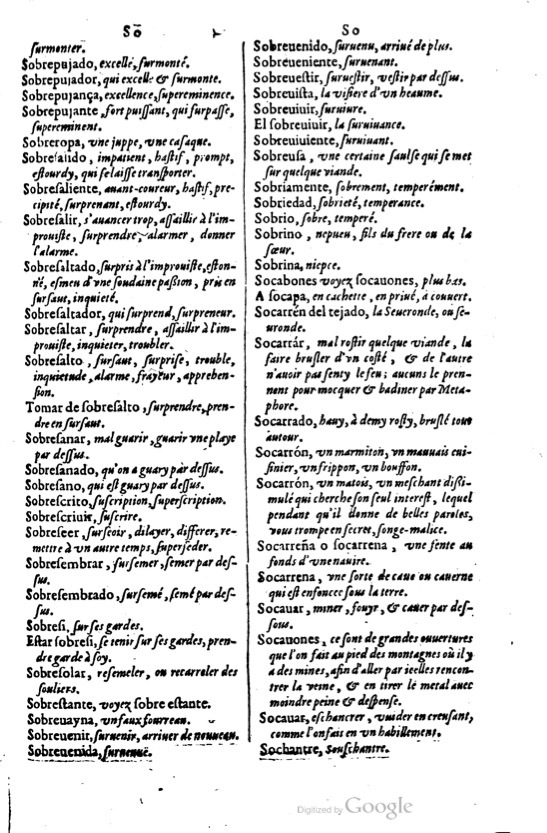 So
ſurmonter.
Sobrepujado, excellé, ſurmonté.
Sobrepujador, qui excelle & ſurmonte.
Sobrepujança, excellence, ſupereminence.
Sobrepujante, fort puiſſant, qui ſurpaſſe,
ſupereminent.
Sobreropa, vne juppe, vne caſaque.
Sobreſalido, impatient, haſtif, prompt,
eſtourdy, qui ſe laiſſe tranſporter.
Sobreſaliente, auant-coureur, haſtif, pre-
cipité, ſurprenant, eſtourdy.
Sobreſalir, s'auancer trop, aſſaillir à l'im-
prouiſte, ſurprendre, alarmer, donner
l'alarme.
Sobreſaltado, ſurpris à l'improuiſte, eſton-
né, eſmeu d'vne ſoudaine paſſion, pris en
ſurſaut, inquieté.
Sobreſaltador, qui ſurprend, ſurpreneur.
Sobreſaltar, ſurprendre, aſſaillir à l'im-
prouiſte, inquieter, troubler.
Sobreſalto, ſurſaut, ſurpriſe, trouble,
inquietude, alarme, frayeur, apprehen-
ſion.
Tomar de ſobreſalto, ſurprendre, pren-
dre en ſurſaut.
Sobreſanar, mal guarir, guarir vne playe
par deſſus.
Sobreſanado, qu'on a guary par deſſus.
Sobreſano, qui eſt guary par deſſus.
Sobreſcrito, ſuſcription, ſuperſcription.
Sobreſcriuir, ſuſcrire.
Sobreſeer, ſurſeoir, dilayer, differer, re-
mettre à vn autre temps, ſuperſeder.
Sobreſembrar, ſurſemer, ſemer par deſ-
ſus.
Sobreſembrado, ſurſemé, ſemé par deſ-
ſus.
Sobreſi, ſur ſes gardes.
Eſtar ſobreſi, ſe tenir ſur ſes gardes, pren-
dre garde à ſoy.
Sobreſolar, reſemeler, ou recarreler des
ſouliers.
Sobreſtante, voyez ſobre eſtante.
Sobreuayna, vn faux fourreau.
Sobreuenir, ſuruenir, arriuer de nouueau.
Sobreuenida, ſuruenuë.
So
Sobreuenido, ſuruenu, arriué de plus.
Sobreueniente, ſuruenant.
Sobreueſtir, ſurueſtir, veſtir par deſſus.
Sobreuiſta, la viſiere d'vn heaume.
Sobreuiuir, ſuruiure.
El ſobreuiuir, la ſuruiuance.
Sobreuiuiente, ſuruiuant.
Sobreuſa, vne certaine ſaulſe qui ſe met
ſur quelque viande.
Sobriamente, ſobrement, temperément.
Sobriedad, ſobrieté, temperance.
Sobrio, ſobre, temperé.
Sobrino, nepueu, fils du frere ou de la
ſœur.
Sobrina, niepce.
Socabones voyez ſocauones, plus bas.
A ſocapa, en cachette, en priué, à couuert.
Socarrén del tejado, la Seueronde, ou ſe-
uronde.
Socarrár, mal roſtir quelque viande, la
faire bruſler d'vn coſté, & de l'autre
n'auoir pas ſenty le feu; aucuns le pren-
nent pour mocquer & badiner par Meta-
phore.
Socarrado, hauy, à demy roſty, bruſlé tout
autour.
Socarrón, vn marmiton, vn mauuais cui-
ſinier, vn frippon, vn bouffon.
Socarrón, vn matois, vn meſchant diſſi-
mulé qui cherche ſon ſeul intereſt, lequel
pendant qu'il donne de belles paroles,
vous trompe en ſecret, ſonge-malice.
Socarreña o ſocarrena, vne fente au
fonds d'vne nauire.
Socarrena, vne ſorte de caue ou cauerne
qui eſt enfoncee ſous la terre.
Socauar, miner, fouyr, & cauer par deſ-
ſous.
Socauones, ce ſont de grandes ouuertures
que l'on fait au pied des montagnes où il y
a des mines, afin d'aller par icelles rencon-
trer la veine, & en tirer le metal auec
moindre peine & deſpenſe.
Socauar, eſchancrer, vuider en creuſant,
comme l'on fait en vn habillement.
Sochantre, Souſchantre.
Digitized by Google